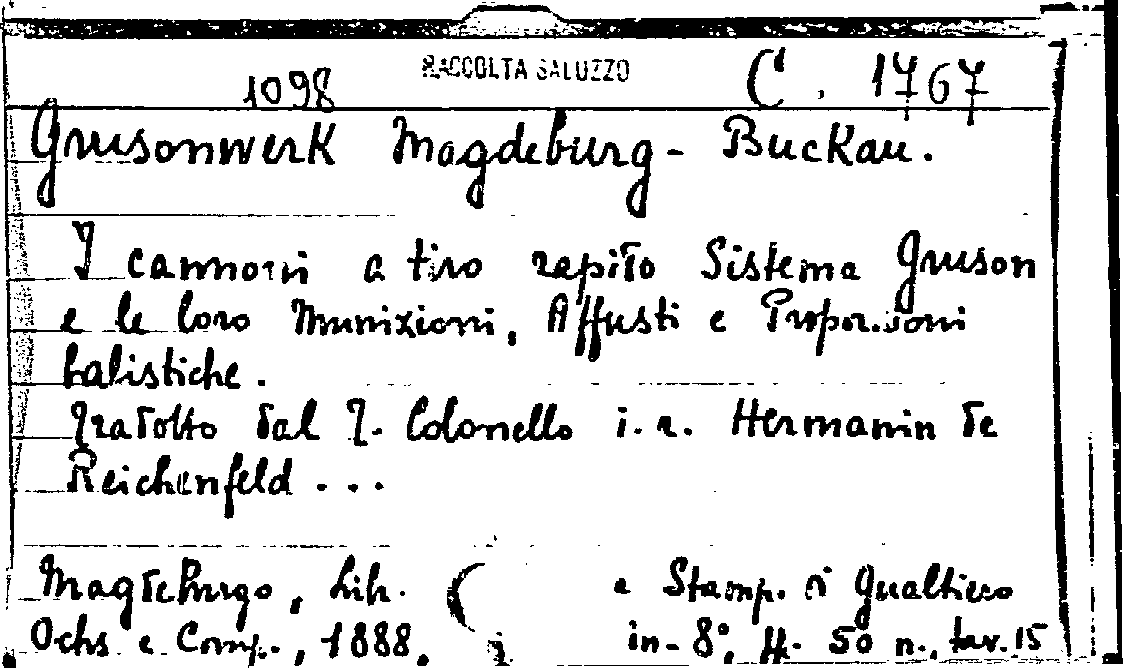 RACCOLTA SALUZZO
1098 C. 1767
Grusonwerk Magdeburg - Buckau.
I cannoni a tiro rapido Sistema Gruson
e le loro Munizioni, Affusti e Proporzioni
balistiche.
Tradotto dal T. Colonello i. r. Hermanin de
Reichenfeld ...
Magdeburgo, Lib. e Stamp. di Gualtiero
Ochs e Comp., 1888. in-8°, ff. 50 n., tav. 15